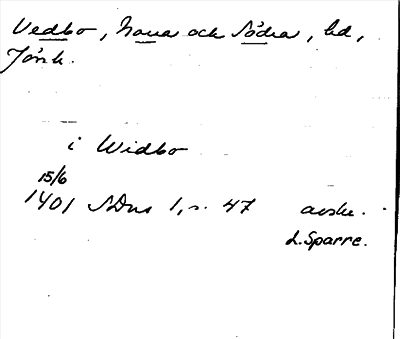 Vedbo, Norra och Södra, hd,
Jönk.
i Widbo
15/6
1401 SDns 1, s. 47 avskr.
L. Sparre.